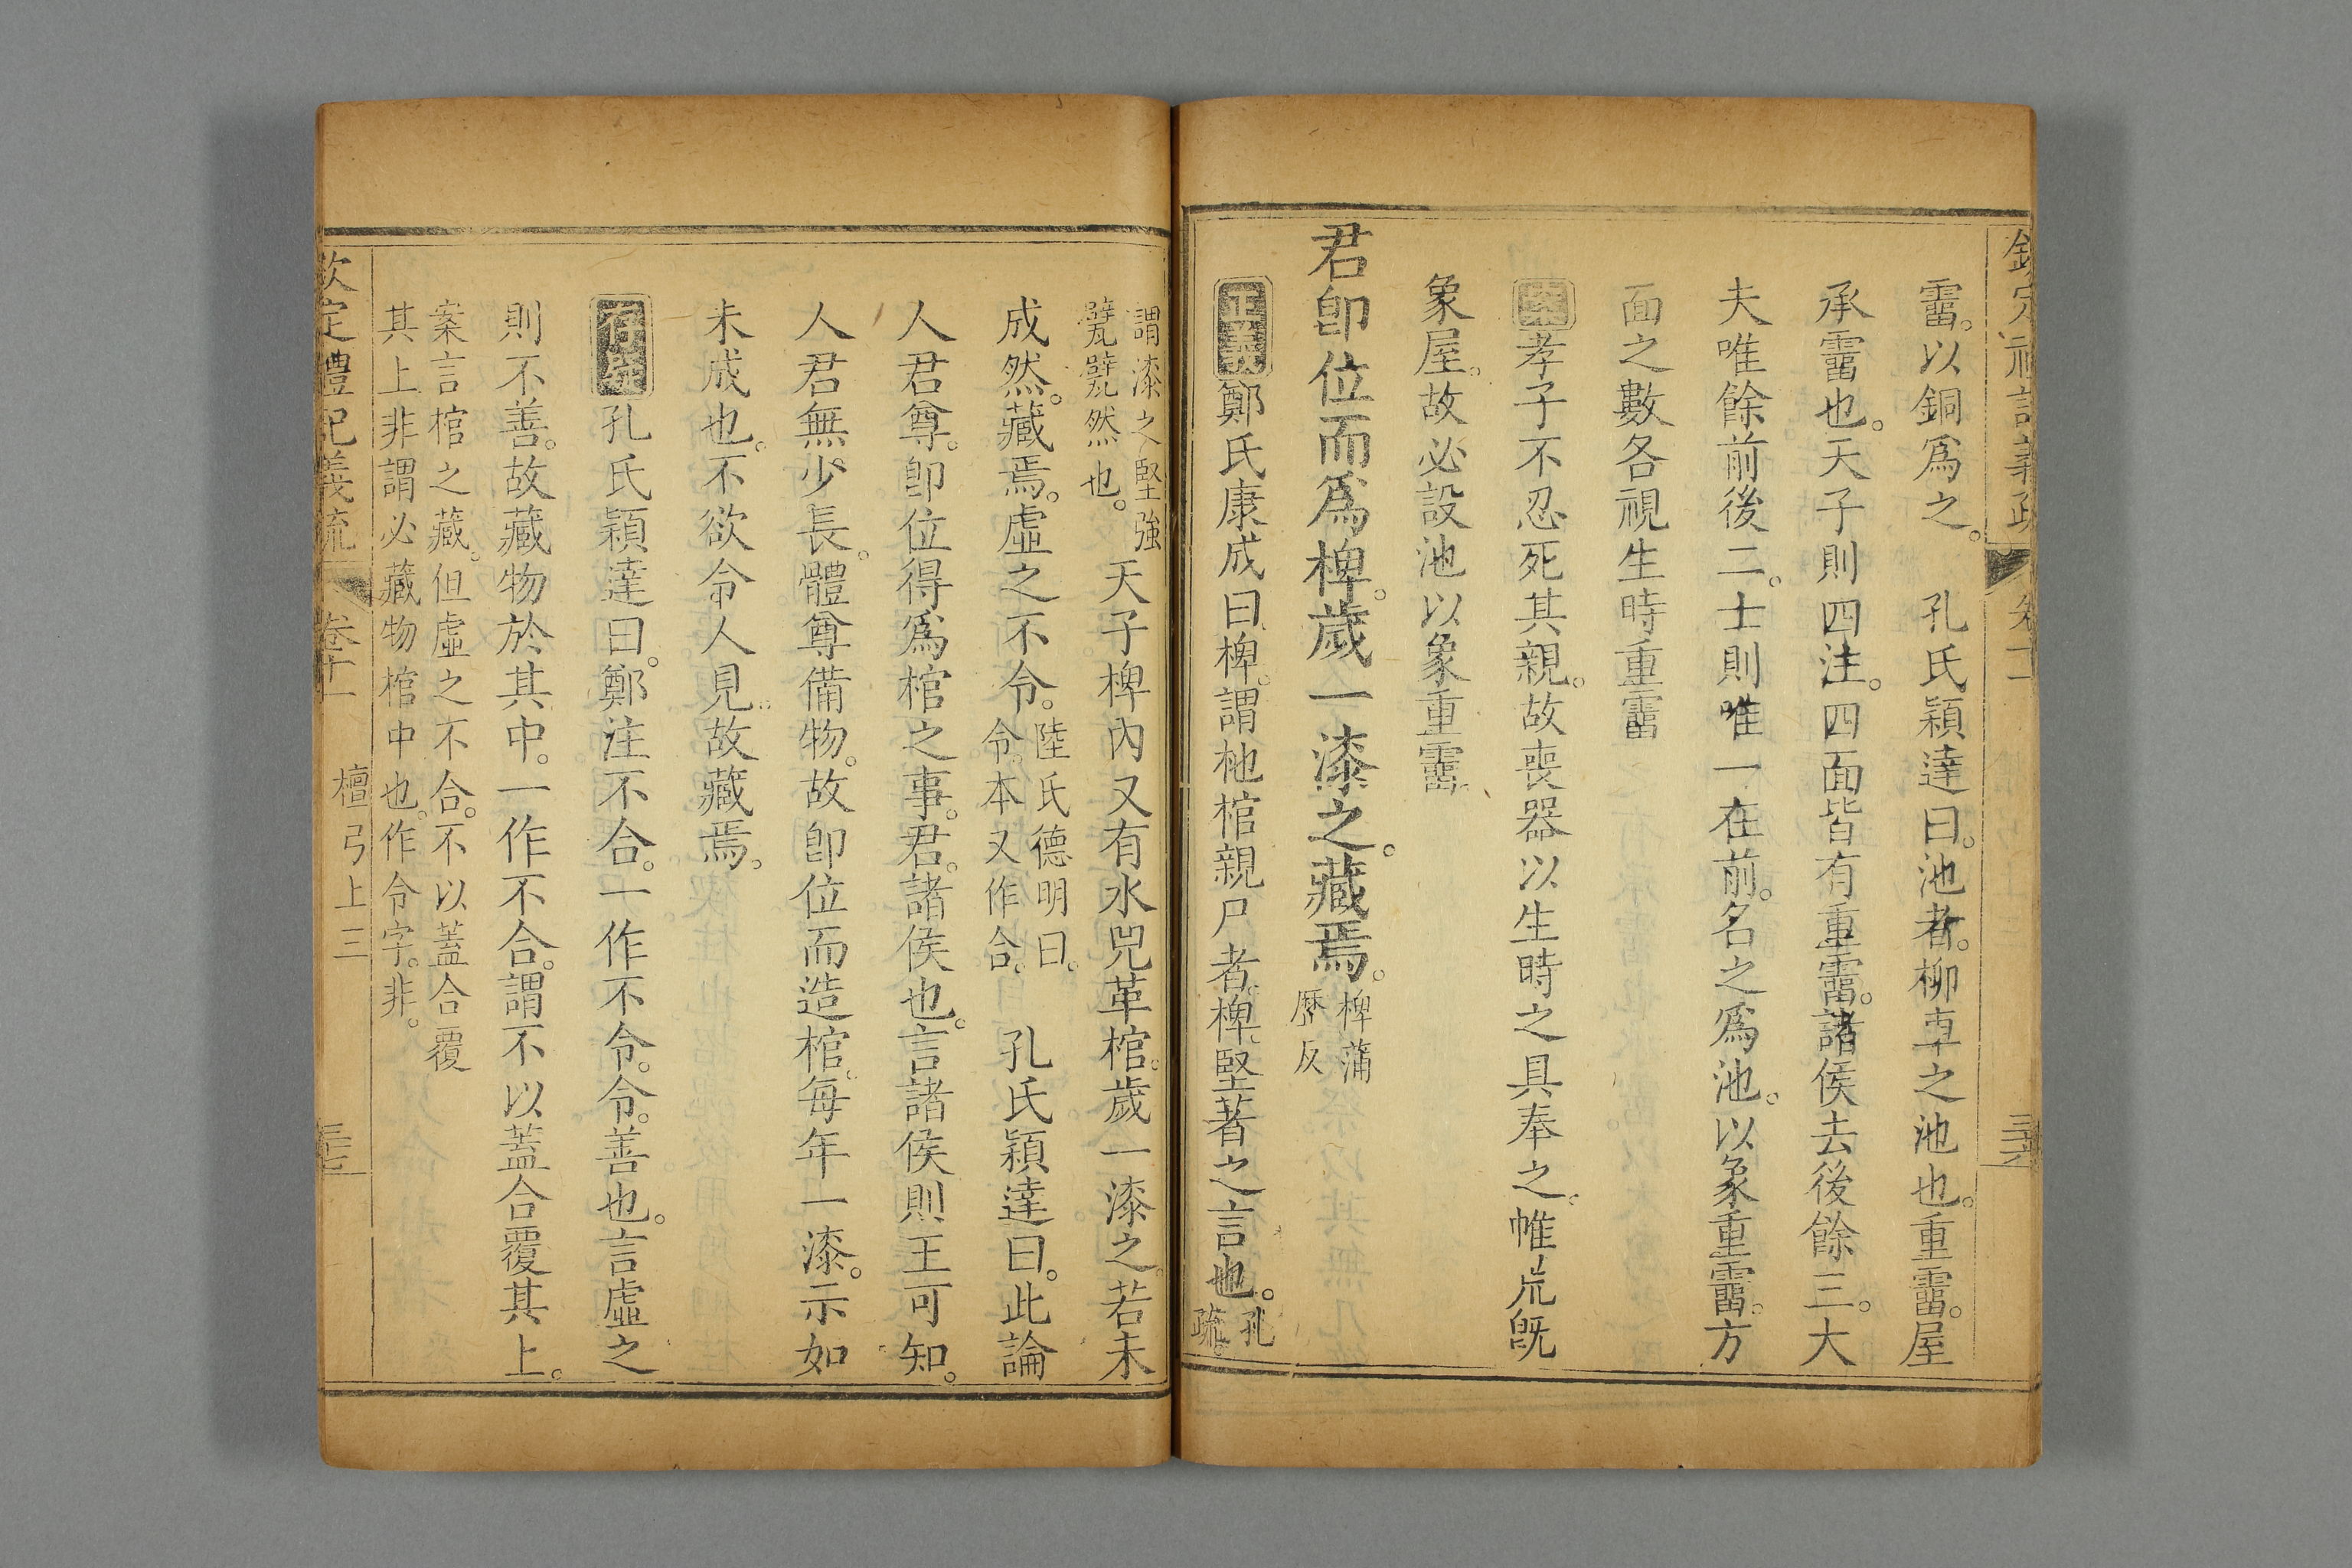 欽定禮記義疏 卷十一 三六
霤。以銅爲之。 孔氏穎達曰。池者。柳車之池也。重霤。屋
承霤也。天子則四注。四面皆有重霤。諸侯去後餘三。大
夫唯餘前後二。士則唯一在前。名之爲池。以象重霤。方
面之數各視生時重霤
案孝子不忍死其親。故喪器以生時之具奉之。帷㡆旣
象屋。故必設池以象重霤。
君卽位而爲椑。歲一漆之。藏焉。椑蒲
歷反
正義鄭氏康成曰。椑。謂杝棺親尸者。椑。堅著之言也。孔
疏。
謂漆之堅強
甓甓然也。天子椑內又有水兕革棺。歲一漆之。若未
成然。藏焉。虛之不令。陸氏德明曰。
令。本又作合。 孔氏穎達曰。此論
人君尊。卽位得爲棺之事。君。諸侯也。言諸侯則王可知。
人君無少長。體尊備物。故卽位而造棺。每年一漆。示如
未成也。不欲令人見。故藏焉。
存疑孔氏穎達曰。鄭注不合。一作不令。令。善也。言虛之
則不善。故藏物於其中。一作不合。謂不以蓋合覆其上。
案言棺之藏。但虛之不合。不以蓋合覆
其上非謂必藏物棺中也。作令字。非。
欽定禮記義疏 卷十一 檀弓上三 三七